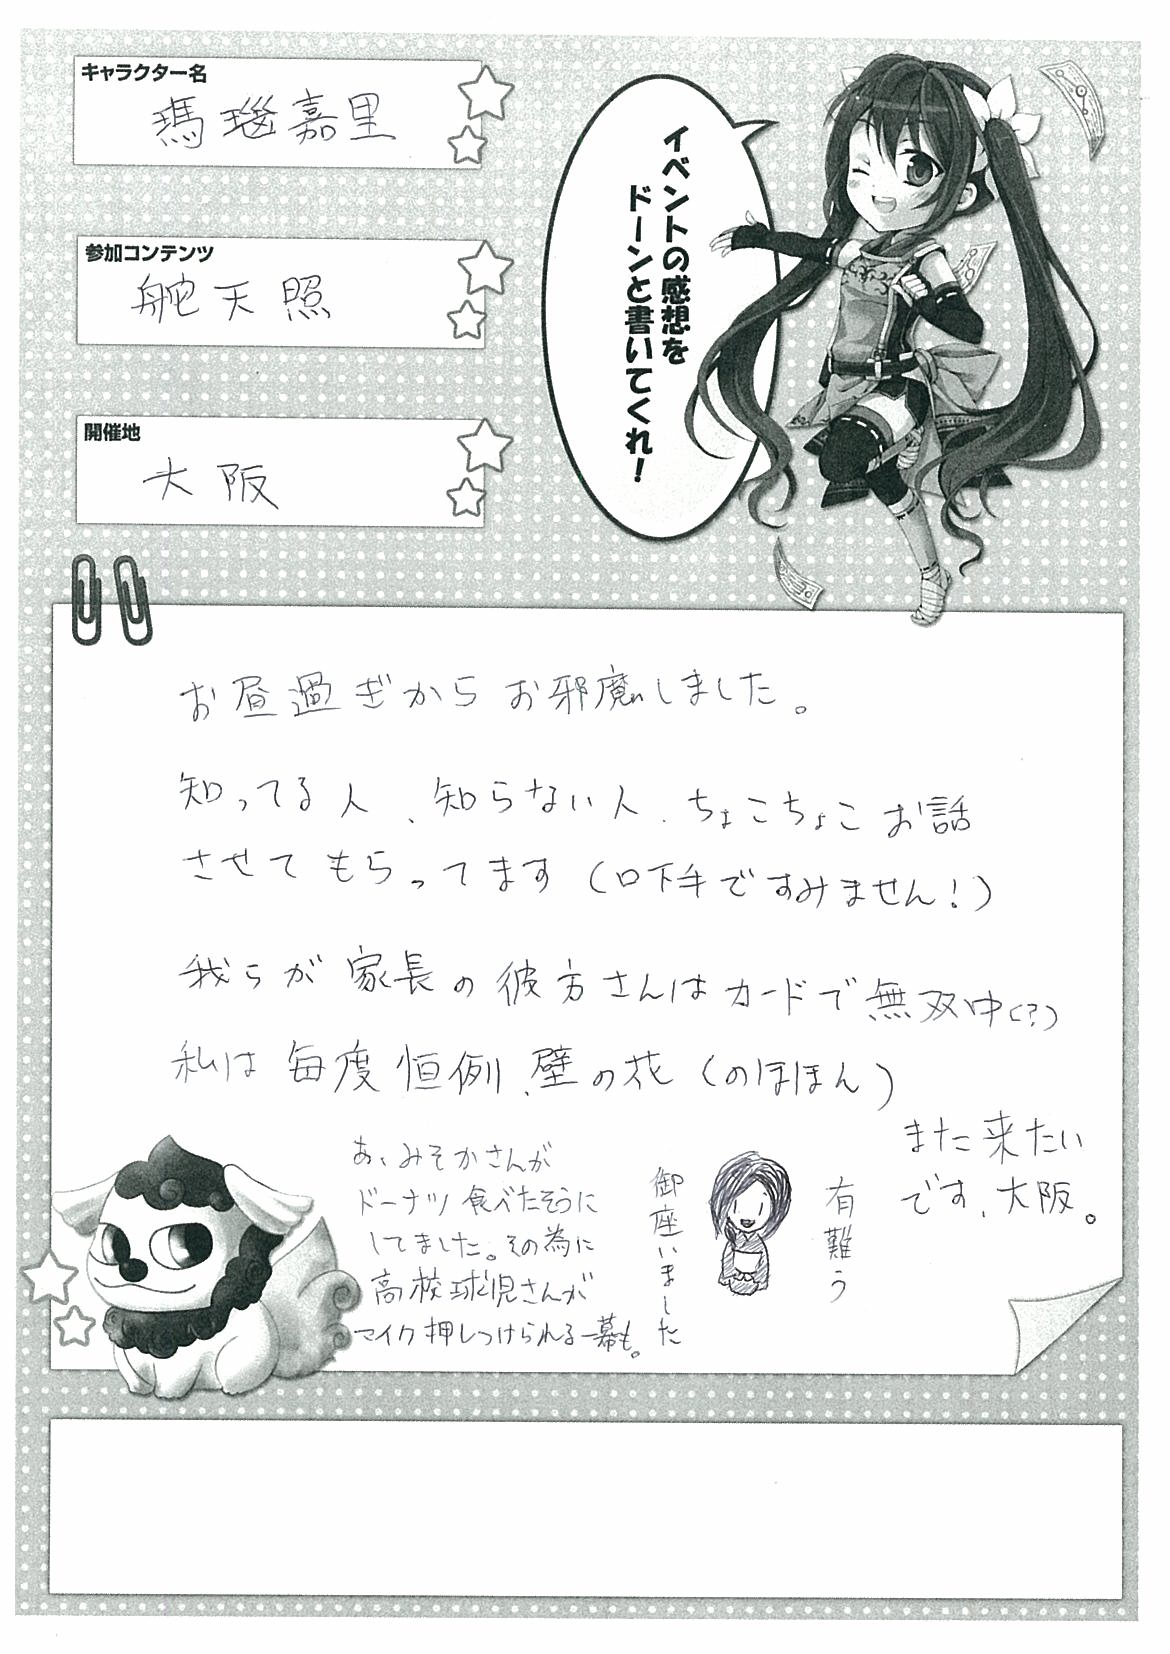 キャラクター名
瑪瑙嘉里
参加コンテンツ
舵天照
開催地
大阪
イベントの感想を
ドーンと書いてくれ！
お昼過ぎからお邪魔しました。
知ってる人、知らない人、ちょこちょこお話
させてもらってます(口下手ですみません!)
我らが家長の彼方さんはカードで無双中(?)
私は毎度恒例、壁の花(のほほん)
また来たい
です、大阪。
あ、みそかさんが
ドーナツ食べたそうに
してました。その為に
高校球児さんが
マイク押しつけられる一幕も。
有難う
御座いました